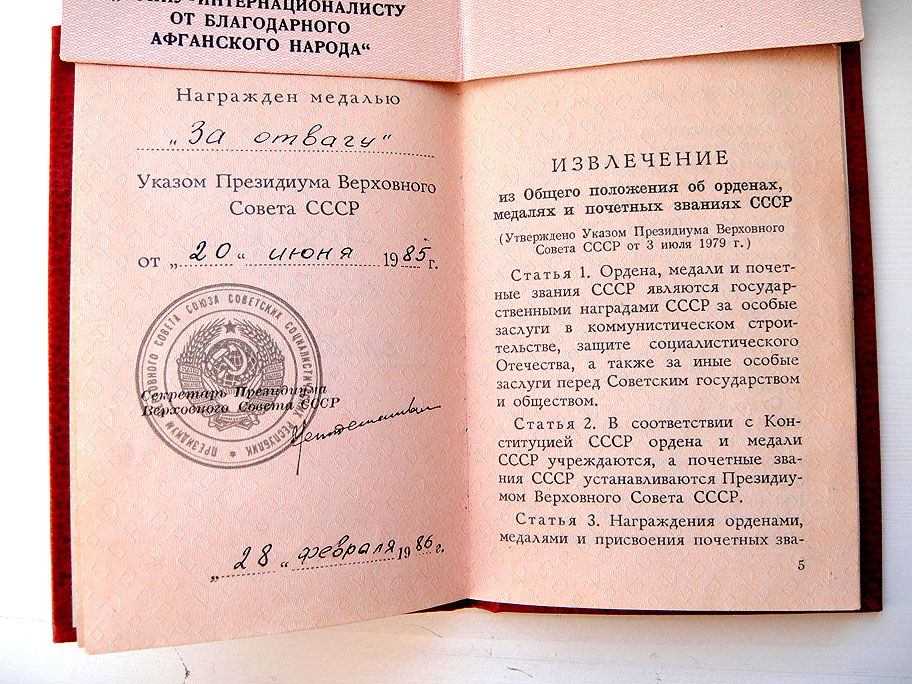 -ИНТЕРНАЦИОНАЛИСТУ
ОТ БЛАГОДАРНОГО
АФГАНСКОГО НАРОДА“
Награжден медалью
„За отвагу“
Указом Президиума Верховного
Совета СССР
от „20“ июня 1985 г.
ПРЕЗИДИУМ ВЕРХОВНОГО СОВЕТА СОЮЗА СОВЕТСКИХ СОЦИАЛИСТИЧЕСКИХ РЕСПУБЛИК
Секретарь Президиума
Верховного Совета СССР
„28“ февраля 1986 г.
ИЗВЛЕЧЕНИЕ
из Общего положения об орденах,
медалях и почетных званиях СССР
(Утверждено Указом Президиума Верховного
Совета СССР от 3 июля 1979 г.)
Статья 1. Ордена, медали и почет-
ные звания СССР являются государ-
ственными наградами СССР за особые
заслуги в коммунистическом строи-
тельстве, защите социалистического
Отечества, а также за иные особые
заслуги перед Советским государством
и обществом.
Статья 2. В соответствии с Кон-
ституцией СССР ордена и медали
СССР учреждаются, а почетные зва-
ния СССР устанавливаются Президиу-
мом Верховного Совета СССР.
Статья 3. Награждения орденами,
медалями и присвоения почетных зва-
5